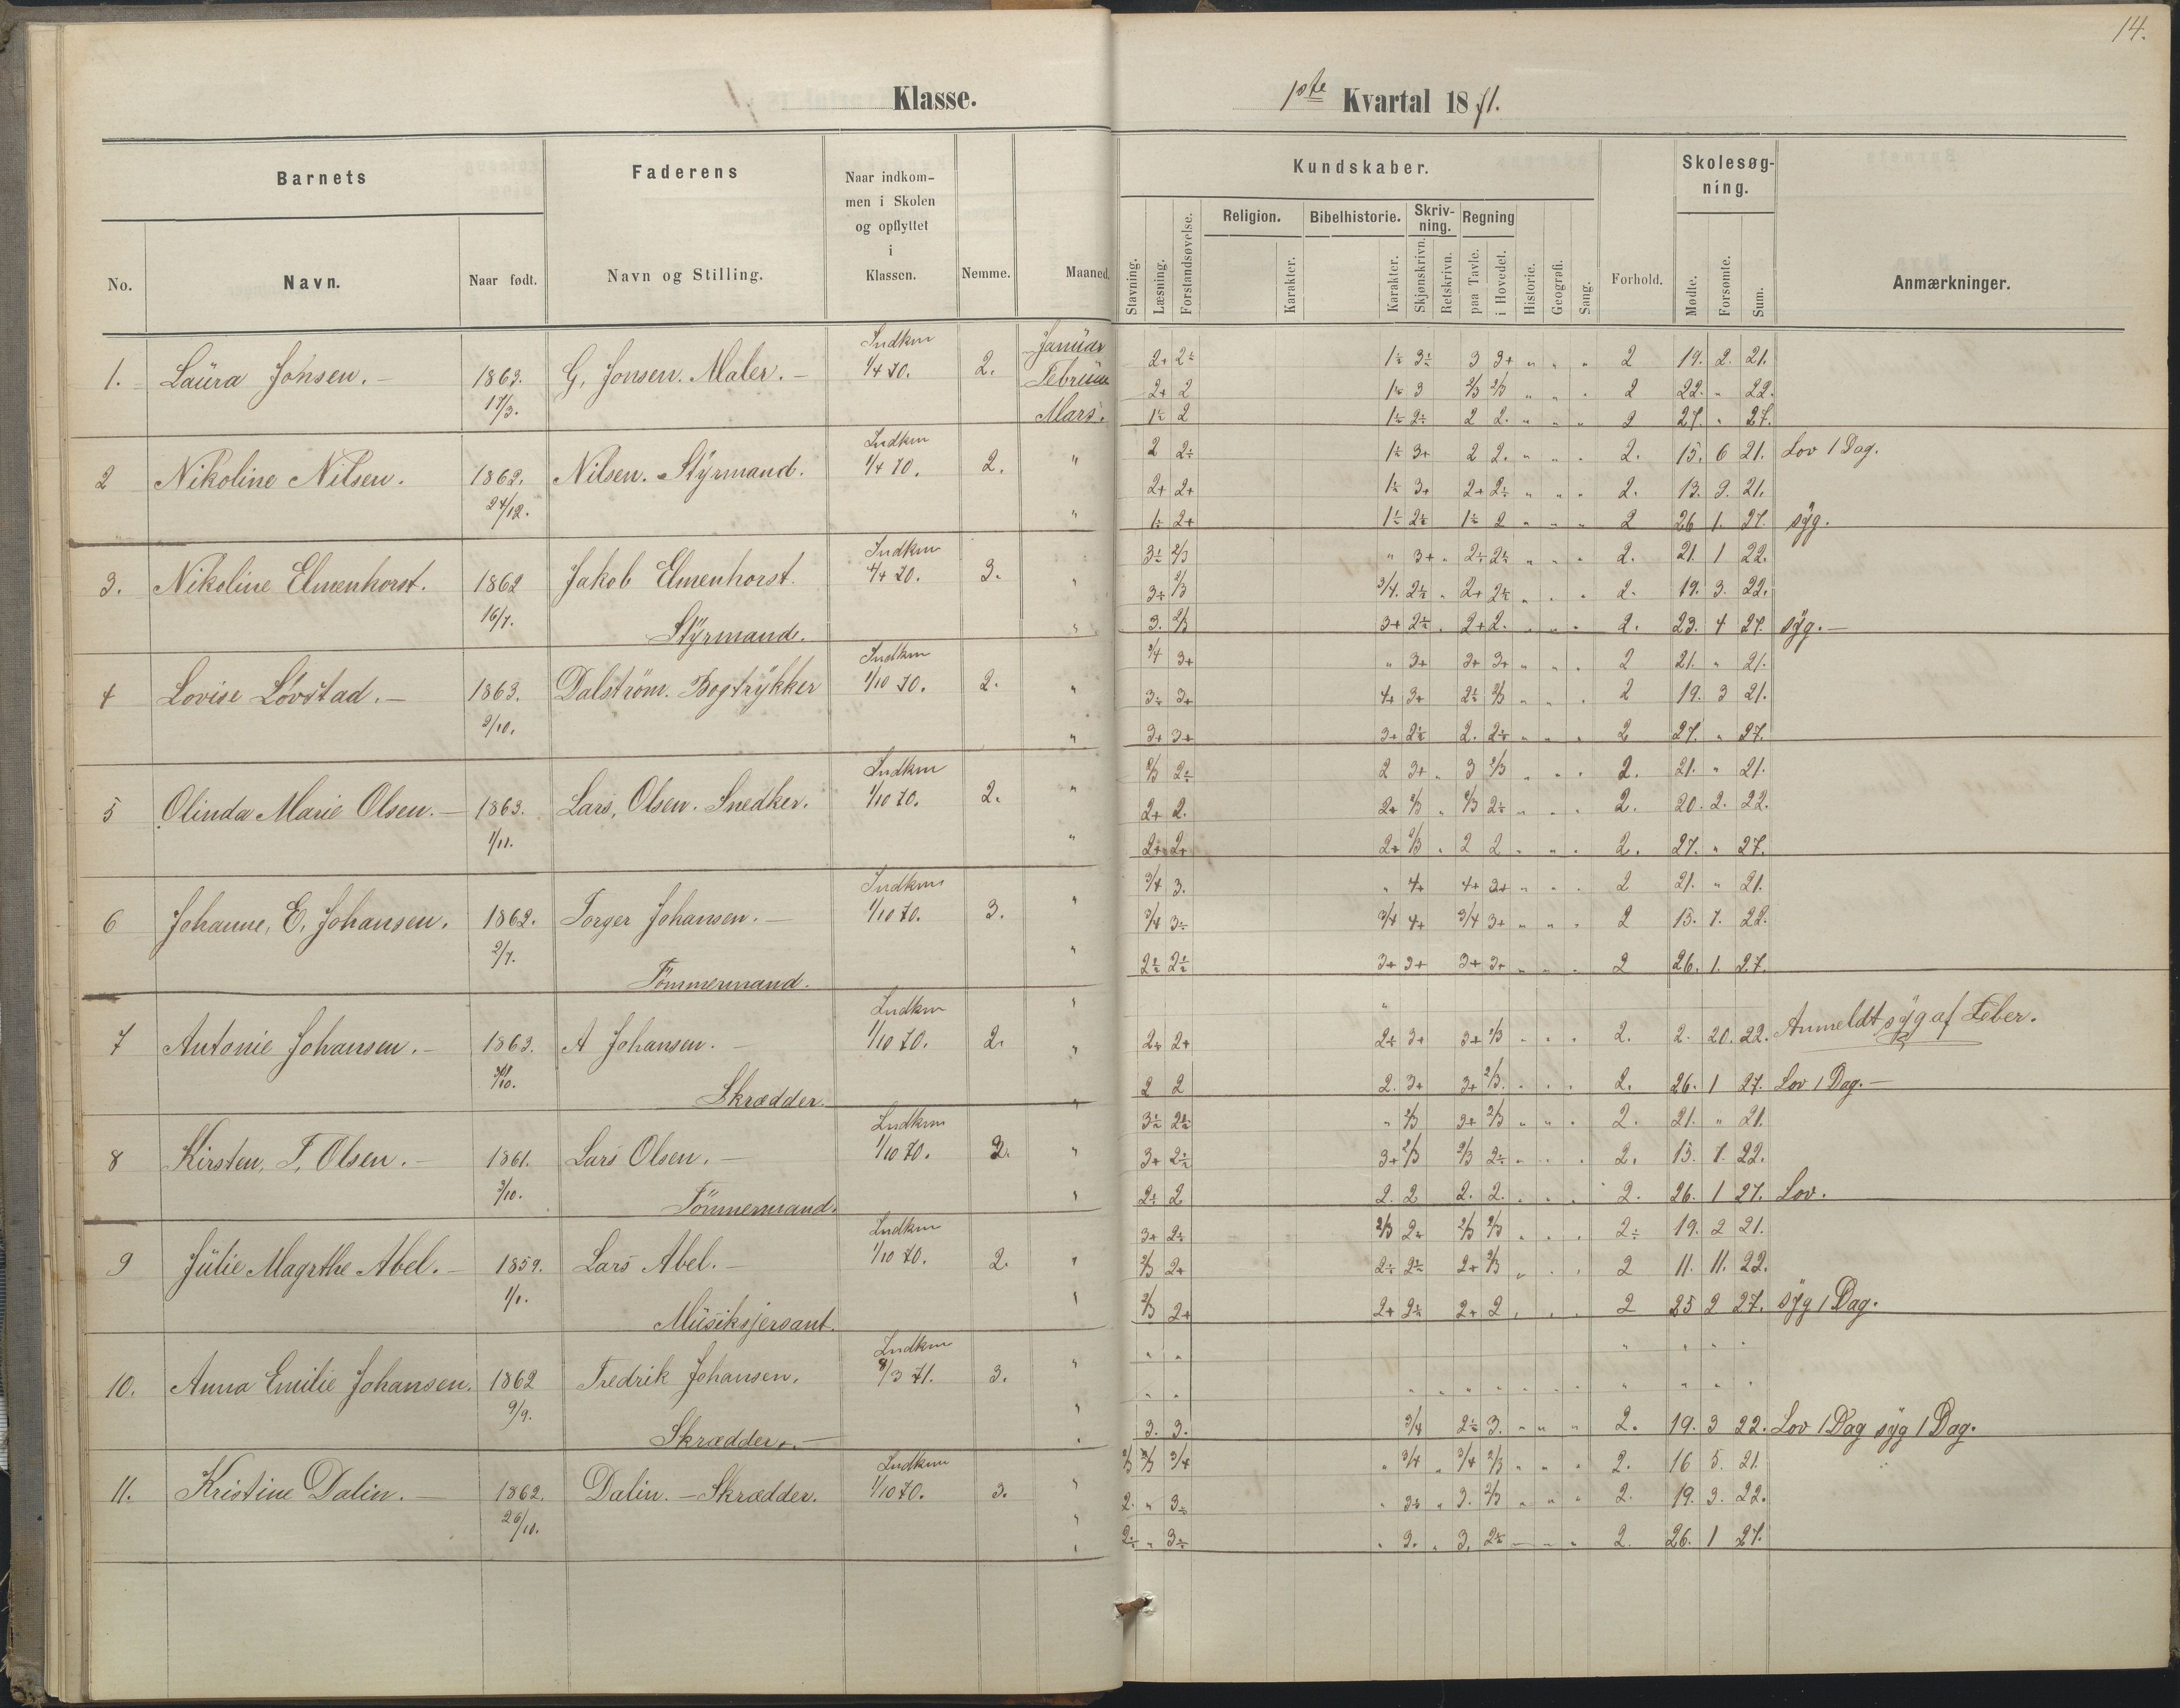 14.
1 Klasse.
1ste Kvartal 1871.
Barnets
Faderens
Naar indkom-
men i Skolen
og opflyttet
i
Klassen.
No.
Navn.
Naar født.
Navn og Stilling.
Nemme.
Maaned.
Kundskaber.
Religion.
Bibelhistorie.
Skriv-
ning.
Regning
Stavning.
Læsning.
Forstandsøvelse.
Karakter.
Karakter.
Skjønskrivn.
Retskrivn.
paa Tavle.
i Hovedet.
Historie.
Geografi.
Sang.
Forhold.
Skolesøg-
ning.
Mødte.
Forsømte.
Sum.
Anmærkninger.
Indkm Januar 2+ 2÷ 1÷ 3÷ 3 3+ " " " 2 19. 2. 21.
1. Laura Jonsen. 1863. G. Jonsen. Maler. 1/4 70. 2. Februar 2+ 2 1÷ 3 2/3 2/3 " " " 2 22. " 22.
17/3. Mars. 1÷ 2 1÷ 2÷ 2 2. " " " 2 27. " 27.
Indkm 2 2÷ 1÷ 3+ 2 2. " " " 2. 15. 6 21. Lov 1 Dag.
2 Nikoline Nilsen. 1862. Nilsen. Styrmand. 1/4 70. 2. " 2+ 2+ 1÷ 3+ 2+ 2÷ " " " 2. 13. 9. 21.
24/12. " 1÷ 2+ 1÷ 2÷ 1÷ 2 " " " 2 26 1. 27. syg.
Indkm " 3÷ 2/3 " 3+ " 2÷ 2÷ " " " 2. 21. 1 22.
3. Nikoline Elmenhorst. 1862 Jakob Elmenhorst. 4/4 70. 3. " 3+ 2/3 3/4. 2÷ " 2+ 2÷ " " " 2. 19. 3. 22.
16/7. Styrmand. " 3. 2/3 3+ 2÷ " 2+ 2. " " " 2. 23. 4 27. syg.
Indkm 3/4 3+ " 3+ 3+ 3+ " " " 2 21. " 21.
4 Lovise Løvstad. 1863. Dalstrøm. Bogtrykker 1/10 70. 2. " 3÷ 3+ 4+ 3+ 2÷ 2/3 " " " 2 19. 3 21.
2/10. " 3+ 3+ 3+ 2÷ 2. 2÷ " " " 2 27. " 27.
Indkm 2/3 2÷ 2 3+ " 3 2/3 " " " 2. 21. " 21.
5 Olinda Marie Olsen. 1863. Lars, Olsen. Snedker. 1/10 70. 2. " 2+ 2. 2+ 2/3 " 2/3 2÷ " " " 2. 20. 2. 22.
1/11. " 2+ 2+ 2+ 2/3 " 2 2 " " " 2. 27. " 27.
Indkm 3/4 3. " 4+ 4+ 3+ " " " 2 21. " 21.
6 Johanne, E. Johansen. 1862. Torger Johansen. 1/10 70. 3. " 3/4 3÷ 3/4 4+ 3/4 3+ " " " 2 15. 7. 22.
2/7. Tømmermand. " 2÷ 2÷ 3+ 3+ 3+ 3+ " " " 2 26. 1. 27.
Indkm " "
7 Antonie Johansen. 1863. A Johansen. 1/10 70. 2. " 2÷ 2+ 2÷ 3+ 3+ 2/3 " " " 2. 2. 20. 22. Anmeldt syg af Feber.
Skrædder. 2 2 2. 3+ 3+ 2/3. " " " 2. 26. 1 27. Lov 1 Dag.
Indkm " 3÷ 2÷ " 2/3 3+ 2/3 " " " 2. 21. " 21.
8 Kirsten, T. Olsen. 1861. Lars Olsen. 1/10 70. 2. " 3+ 2÷ 3+ 2/3 2/3 2÷ " " " 2. 15. 7. 22.
2/10. Tømmermand. " 2÷ 2 2. 2 2. 2. " " " 2. 26. 1 27. Lov.
Indkm 3+ 2÷ 2/3 2÷ 2/3 2/3 " " " 2÷ 19. 2 21.
9 Julie Magrthe Abel. 1859. Lars Abel. 1/10 70. 2. " 2/3 2+ 2÷ 2÷ 2+ 2/3 " " " 2 11. 11. 22.
1/1. Musiksjersant. " 2/3 2+ 2+ 2÷ 2+ 2 " " " 2 25 2 27. syg 1 Dag.
Indkm " " " " " "
10. Anna Emilie Johansen. 1862 Fredrik Johansen. 8/3 71. 3. " " " " " " " " " " " " " "
9/9. Skrædder. " 3. 3. 3/4 2÷ 3. " " " 2. 19. 3 22. Lov 1 Dag syg 1 Dag.
Indkm 2/3 2/3 3/4 " 3/4 " 3/4 2/3 " " " 2. 16 5. 21.
11. Kristine Dalin. 1862. Dalin. Skrædder. 1/10 70. 3. " 2. " 3÷ " 3÷ " 3. 2/3 " " " 2. 19. 3. 22.
26/10. " 2÷ " 3÷ " 3. " 3. 2÷ " " " 2. 26. 1 27.